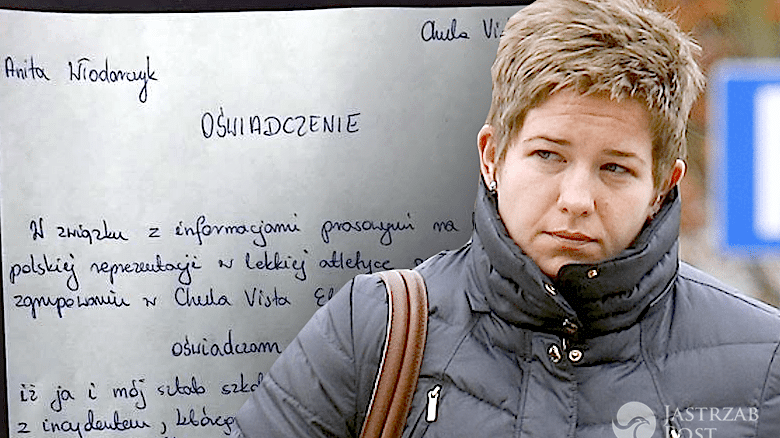 Chula Vis
Anita Włodarczyk
OŚWIADCZENIE
W związku z informacjami prasowymi na
polskiej reprezentacji w lekkiej atletyce
zgrupowaniu w Chula Vista
oświadczam
iż ja i mój sztab
z incydentem, które
JASTRZĄB
POST